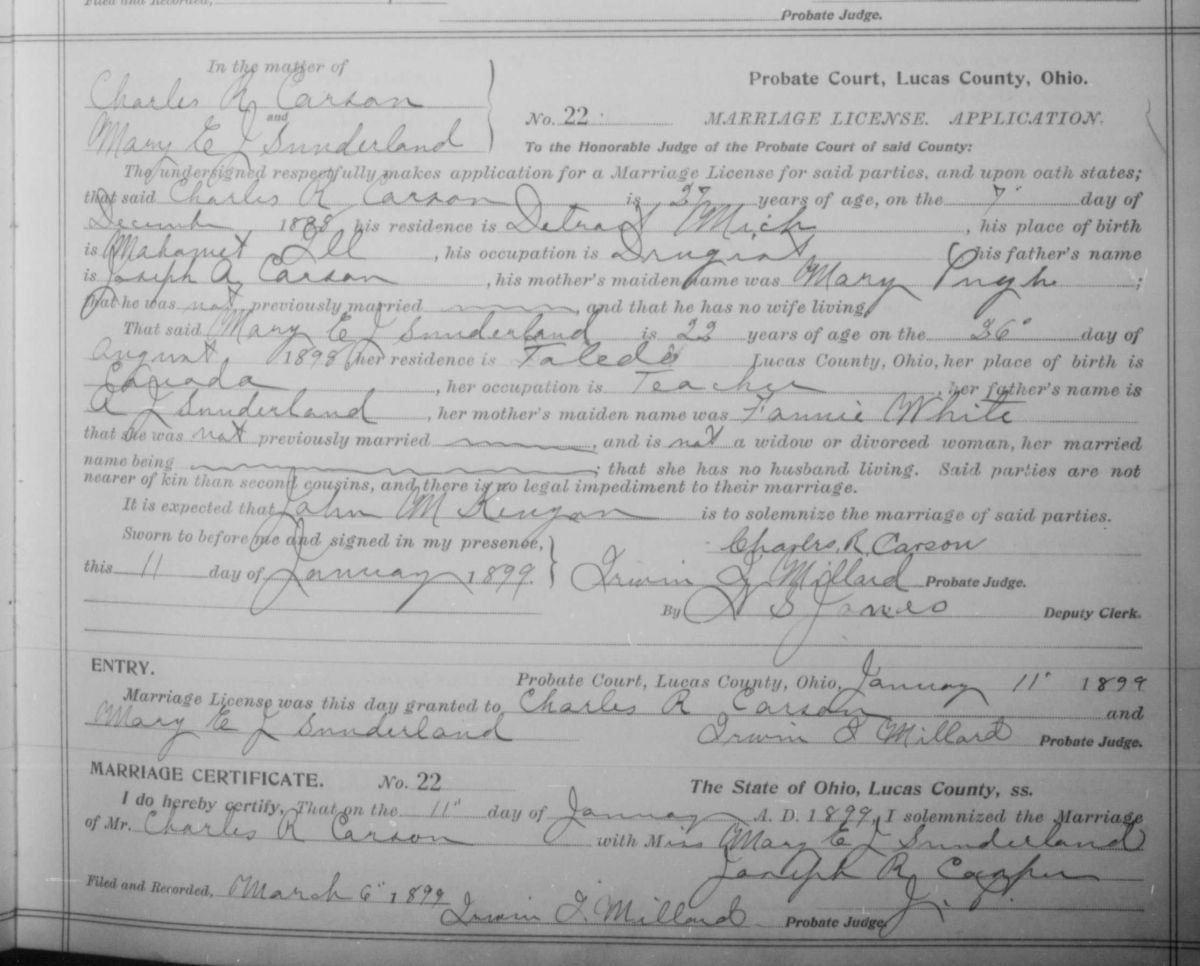 Filed and Recorded,
Probate Judge.
In the matter of
Charles R Carson
and
Mary E J Sunderland
Probate Court, Lucas County, Ohio.
No. 22 MARRIAGE LICENSE. APPLICATION.
To the Honorable Judge of the Probate Court of said County:
The undersigned respectfully makes application for a Marriage License for said parties, and upon oath states;
that said Charles R Carson is 27 years of age, on the 7" day of
December, 1898 his residence is Detroit Mich, his place of birth
is Mahomet Ill, his occupation is Drugist, his father's name
is Joseph A Carson, his mother's maiden name was Mary Pugh;
that he was not previously married and that he has no wife living,
That said Mary E J Sunderland is 22 years of age on the 26" day of
August, 1898 her residence is Toledo Lucas County, Ohio, her place of birth is
Canada, her occupation is Teacher, her father's name is
A J Sunderland, her mother's maiden name was Fannie White
that she was not previously married, and is not a widow or divorced woman, her married
name being; that she has no husband living. Said parties are not
nearer of kin than second cousins, and there is no legal impediment to their marriage.
It is expected that John M Kenyon is to solemnize the marriage of said parties.
Sworn to before me and signed in my presence, Charles. R. Carson
this 11 day of January 1899. Irwin I Millard Probate Judge.
By S Jones Deputy Clerk.
ENTRY. Probate Court, Lucas County, Ohio, January 11" 1899
Marriage License was this day granted to Charles R Carson and
Mary E J Sunderland Irwin I Millard Probate Judge.
MARRIAGE CERTIFICATE. No. 22 The State of Ohio, Lucas County, ss.
I do hereby certify, That on the 11" day of January A. D. 1899, I solemnized the Marriage
of Mr. Charles R Carson with Miss Mary E J Sunderland
Joseph R Cooper
Filed and Recorded, March 6" 1899 Irwin I Millard Probate Judge. J. P.